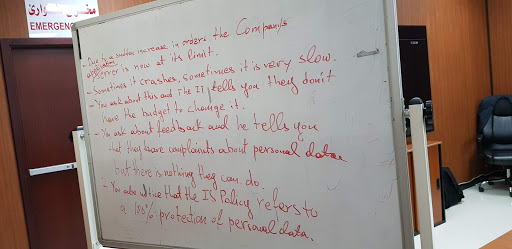 مخرج طوارئ
EMERGENC
- Due to a sudden increase in orders the Company's
application server is now at its limit.
- Sometimes it crashes, sometimes it is very slow.
- You ask about this and the IT tells you they don't
have the budget to change it.
- You ask about feedback and he tells you
that they have complaints about personal data
but there is nothing they can do.
- You also notice that the IS Policy refers to
a 100% protection of personal data.